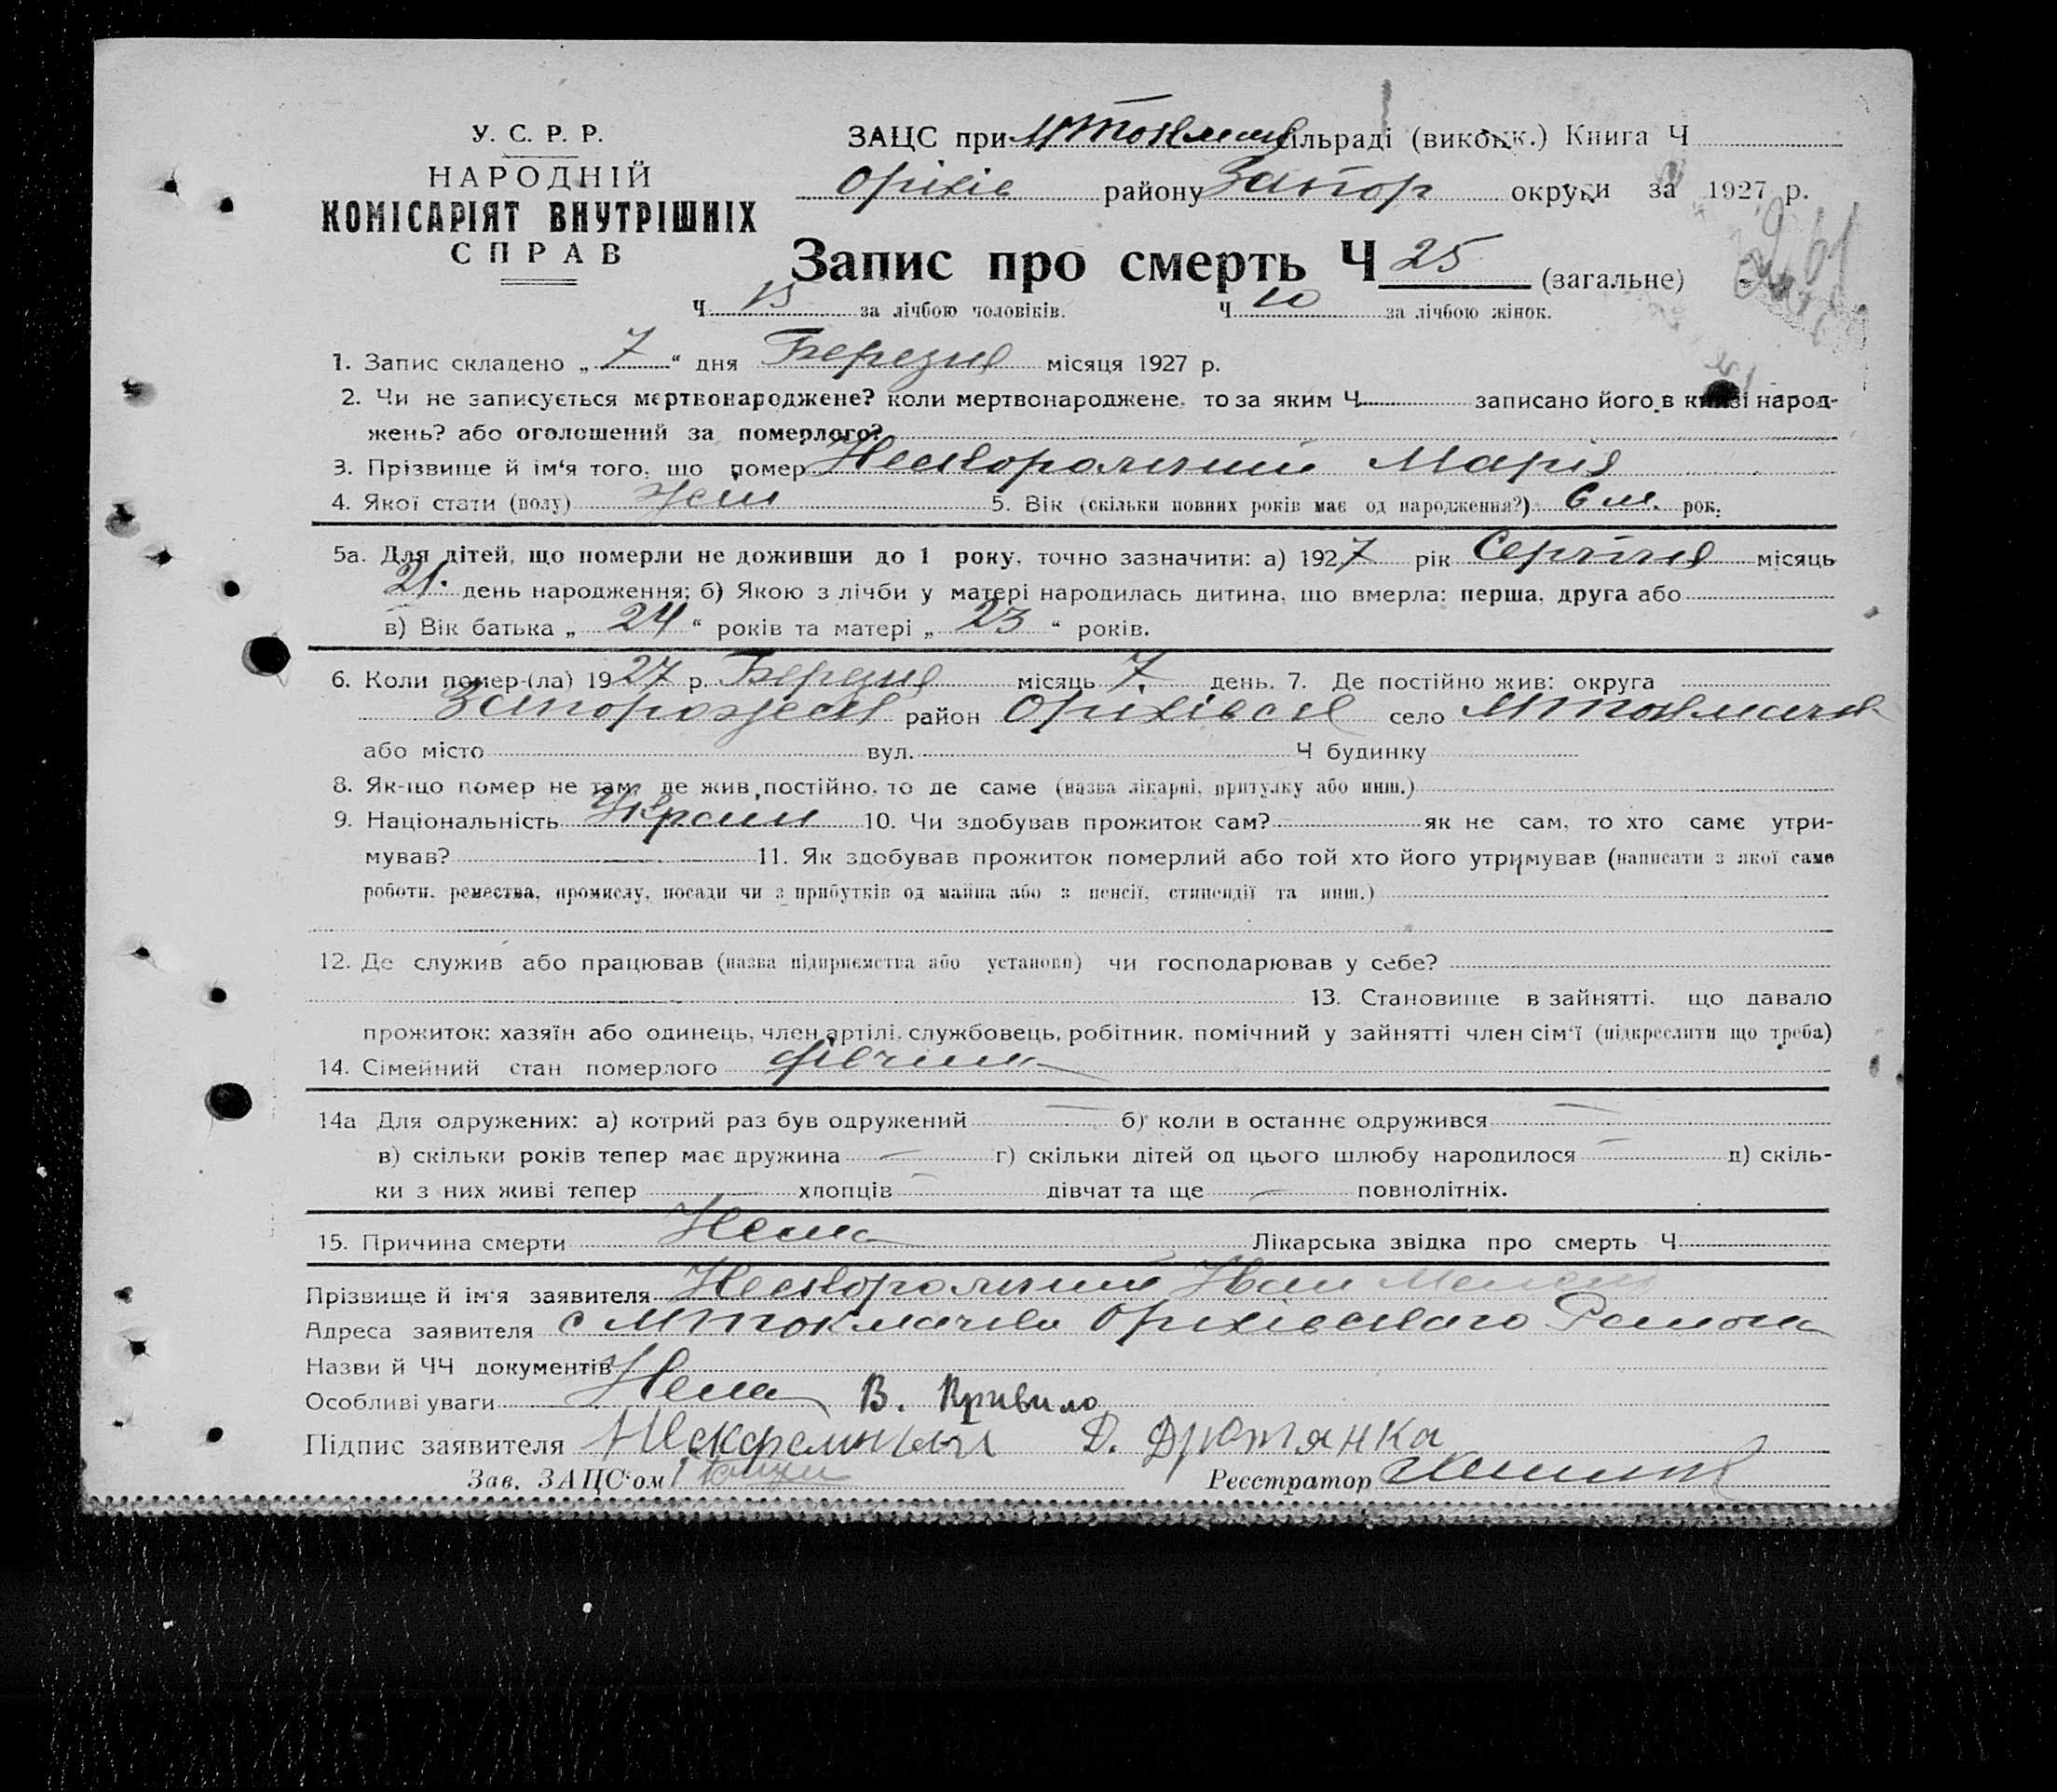 У. С. Р. Р.
НАРОДНІЙ
КОМІСАРІЯТ ВНУТРІШНІХ
СПРАВ
ЗАЦС при МТокмач сільраді (викокк.) Книга Ч
Оріхів району Запор округи за 1927 р.
Запис про смерть Ч 25 (загальне)
Ч 15 за лічбою чоловіків. Ч 10 за лічбою жінок.
1. Запис складено „ 7 “ дня Березня місяця 1927 р.
2. Чи не записується мертвонароджене? коли мертвонароджене, то за яким Ч записано його в книзі народ-
жень? або оголошений за померлого?
3. Прізвище й ім‘я того, що помер Марія
4. Якої стати (полу) жен 5. Вік (скільки повних років має од народження?) 6 м. рок.
5а. Для дітей, що померли не доживши до 1 року, точно зазначити: а) 1927 рік Серпня місяць
21 день народження; б) Якою з лічби у матері народилась дитина, що вмерла: перша, друга або
в) Вік батька „ 24 “ років та матері „ 23 “ років.
6. Коли помер-(ла) 1927 р. Березня місяць 7 день. 7. Де постійно жив: округа
Запорожск район Оріхівск село МТокмачк
або місто вул. Ч будинку
8. Як-що помер не там, де жив постійно, то де саме (назва лікарні, притулку або инш.)
9. Національність Украин 10. Чи здобував прожиток сам? як не сам, то хто саме утри-
мував? 11. Як здобував прожиток померлий або той хто його утримував (написати з якої саме
роботи, ремества, промислу, посади чи з прибутків од майна або з пенсії, стипендії та инш.)
12. Де служив або працював (назва підприємства або установи) чи господарював у себе?
13. Становище в зайнятті, що давало
прожиток: хазяїн або одинець, член артілі, службовець, робітник, помічний у зайнятті член сім‘ї (підкреслити що треба)
14. Сімейний стан померлого дівчина
14а Для одружених: а) котрий раз був одружений — б) коли в останнє одружився —
в) скільки років тепер має дружина — г) скільки дітей од цього шлюбу народилося — д) скіль-
ки з них живі тепер — хлопців — дівчат та ще — повнолітніх.
15. Причина смерти Нема Лікарська звідка про смерть Ч
Прізвище й ім‘я заявителя Иван
Адреса заявителя с МТокмачка Оріхівського Района
Назви й ЧЧ документів
Особливі уваги Нема В. Кривило
Підпис заявителя Д. Дротянка
Зав. ЗАЦС‘ом Реєстратор